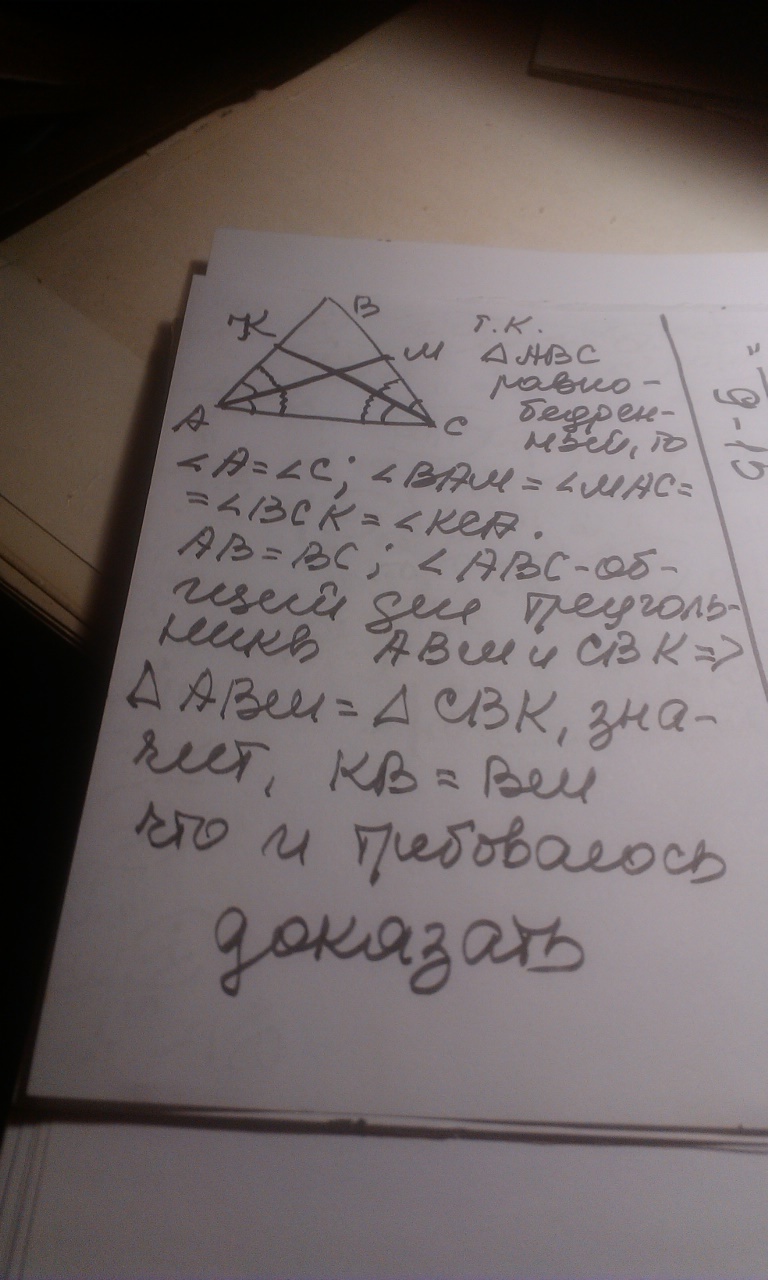 B
K
M
A
C
т.к.
△ABC
равно-
бедрен-
ный, то
∠A=∠C; ∠BAM=∠MAC=
=∠BCK=∠KCA.
AB=BC; ∠ABC-об-
щий для треуголь-
никв ABM и CBK=>
△ABM=△CBK, зна-
чит, KB=BM
что и требовалось
доказать